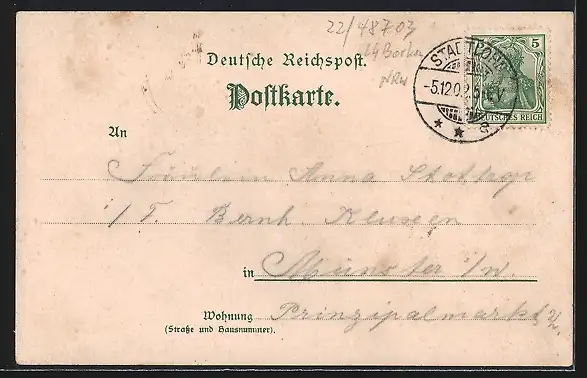 22/48703
Borken
NRW
Deutsche Reichspost.
Postkarte.
5
DEUTSCHES REICH
STADTLOHN
-5.12.02.5-6 V.
* * a
An
Fräulein Anna
i/F. Bernh.
in Münster i/W.
Wohnung Prinzipalmarkt
(Straße und Hausnummer).